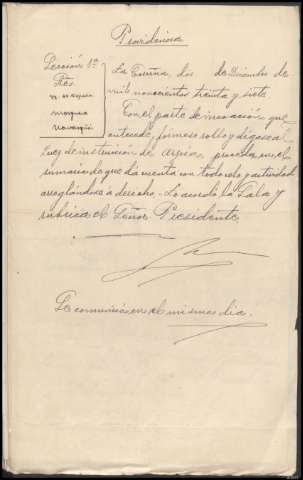 Providencia
Sección 1ª
Sres.
La Coruña, dos de Diciembre de
mil novecientos treinta y siete
Con el parte de incoación que
antecede, fórmese rollo y dígase al
Juez de instrucción de proceda en el
sumario de que dá cuenta con todo celo y actividad
arreglándose a derecho. Lo acordó la Sala y
rubrica el Señor Presidente
Se comunicó en el mismo dia.